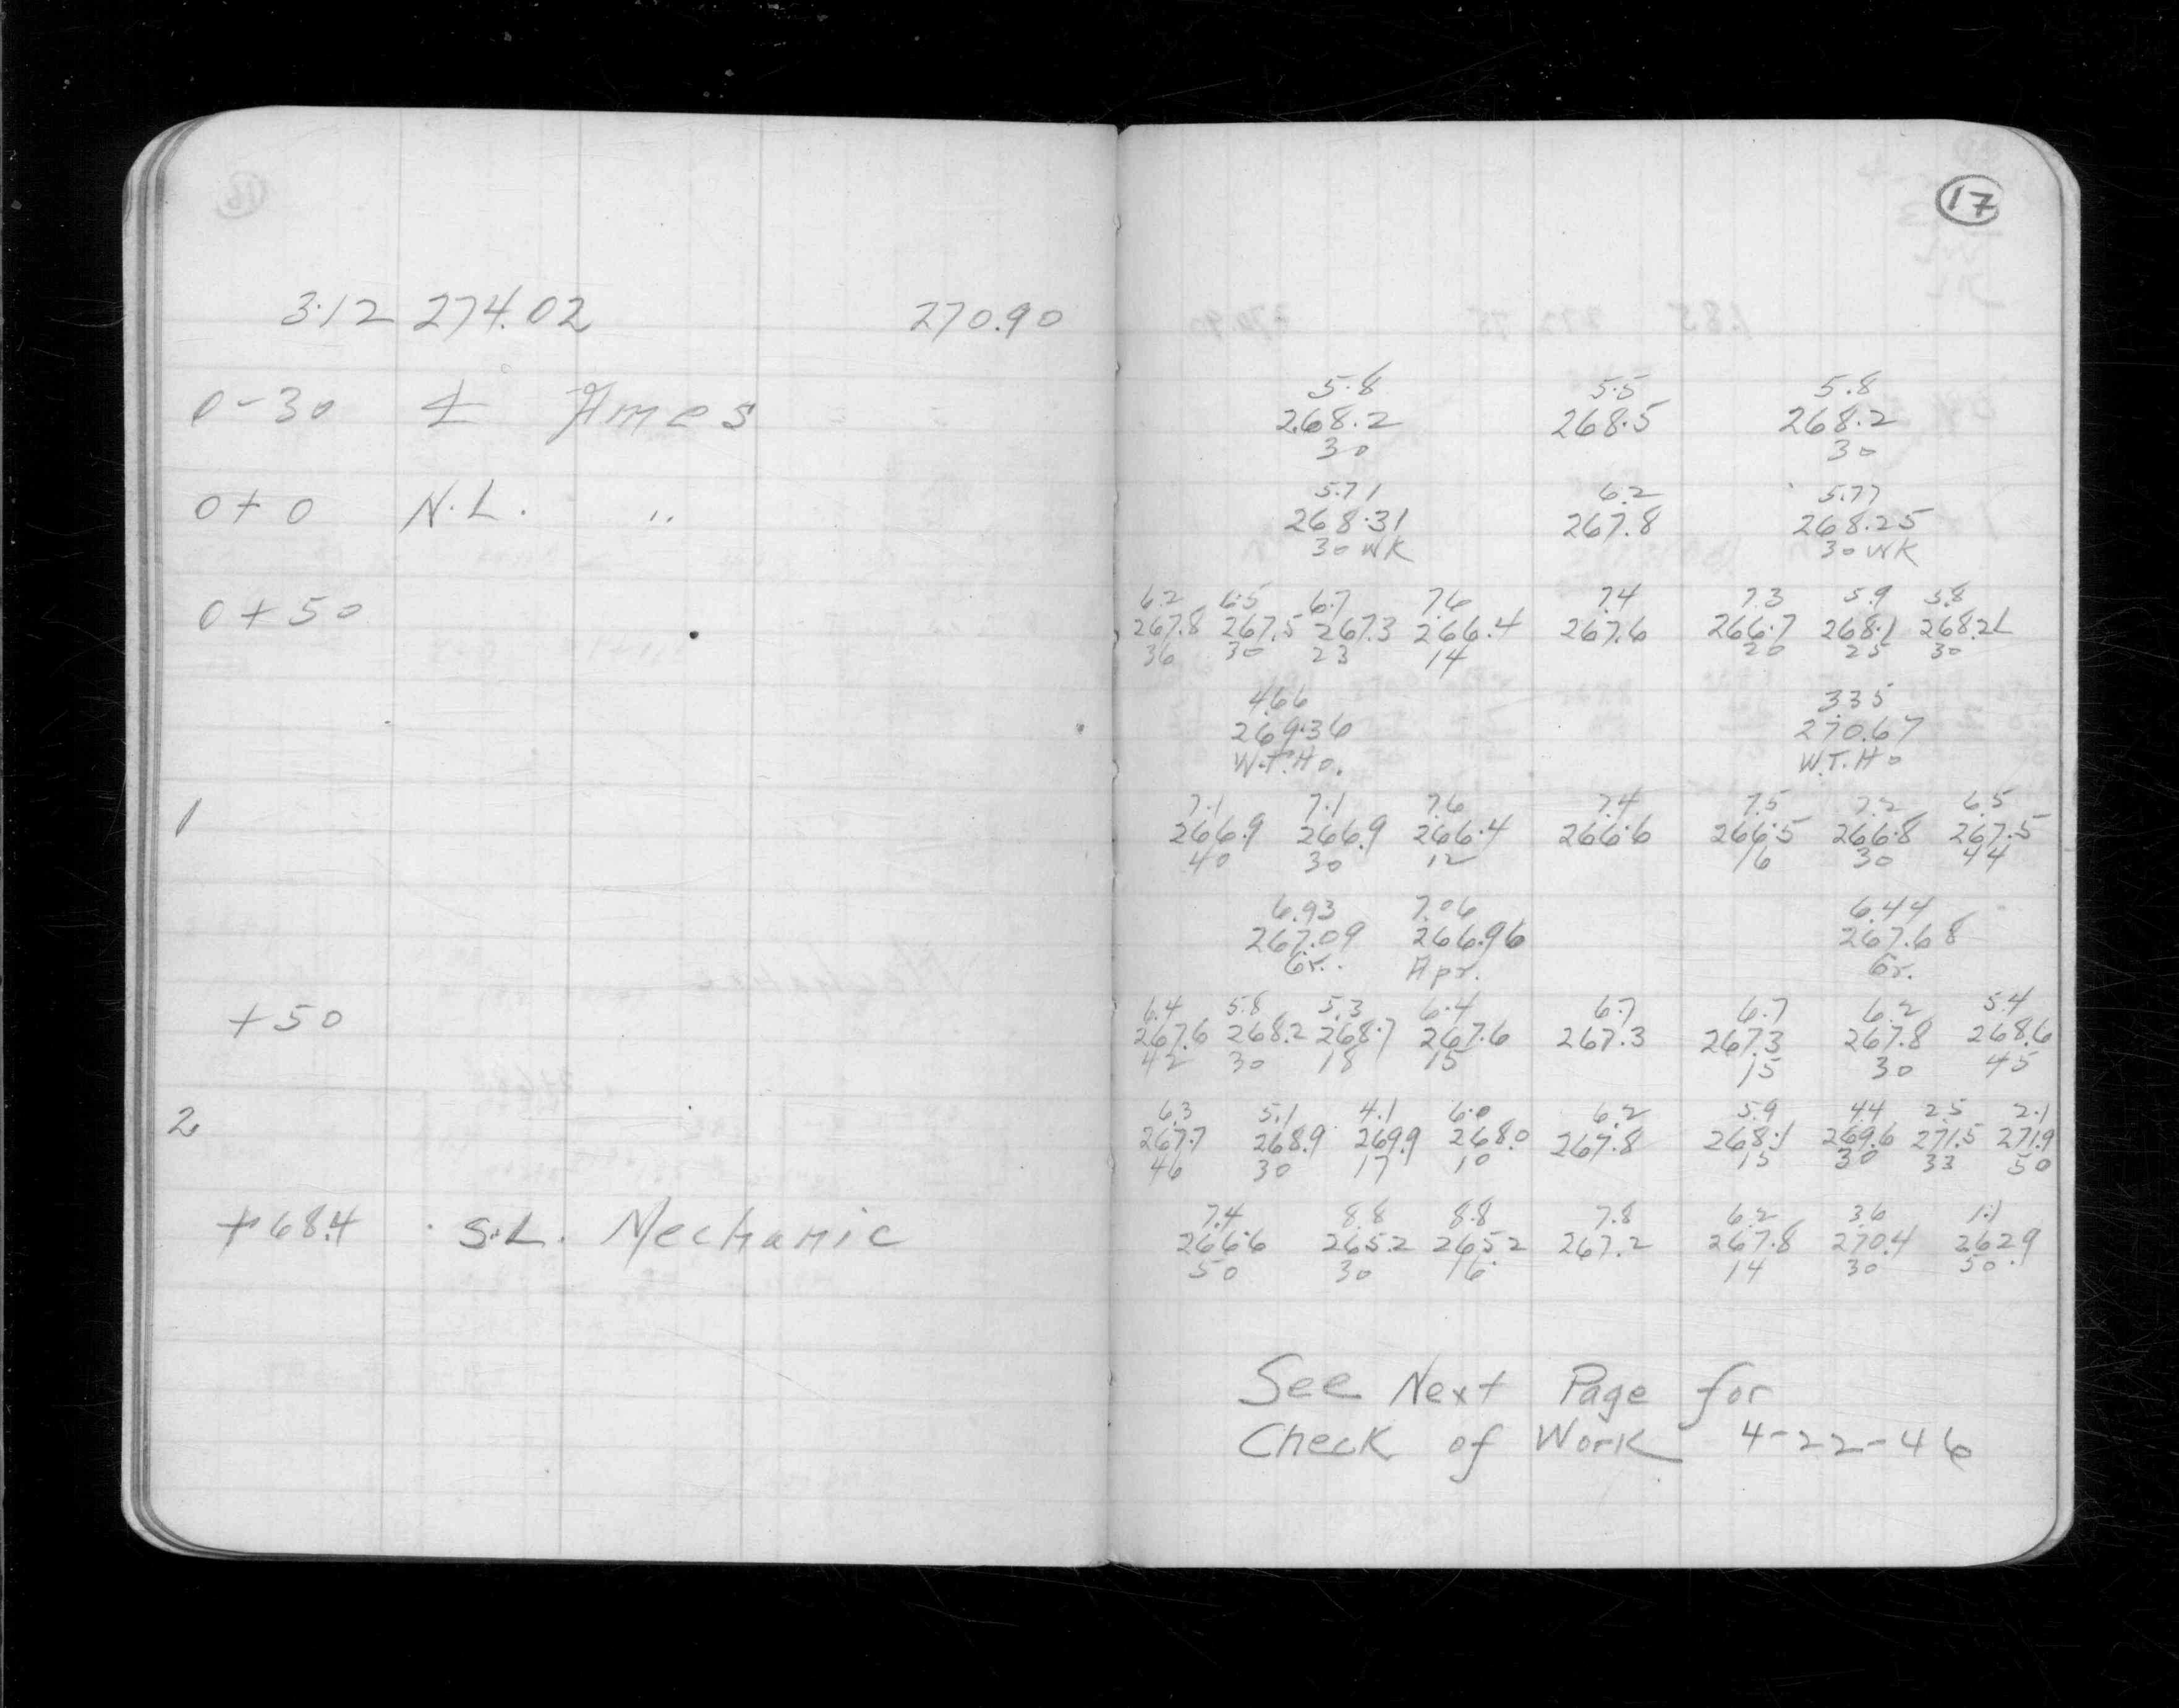 17
3.12 274.02 270.90
5.8 5.5 5.8
0-30 ℄ Ames 268.2 268.5 268.2
30 30
5.71 6.2 5.77
0+0 N.L. " 268.31 267.8 268.25
30 WK 30 WK
6.2 6.5 6.7 7.6 7.4 7.3 5.9 5.8
0+50 267.8 267.5 267.3 266.4 267.6 266.7 268.1 268.2
36 30 23 14 20 25 30
4.66 3.35
269.36 270.67
W.T.Ho. W.T.Ho
7.1 7.1 7.6 7.4 7.5 7.2 6.5
1 266.9 266.9 266.4 266.6 266.5 266.8 267.5
40 30 12 16 30 44
6.93 7.06 6.44
267.09 266.96 267.68
Gr. Apr. Gr.
6.4 5.8 5.3 6.4 6.7 6.7 6.2 5.4
+50 267.6 268.2 268.7 267.6 267.3 267.3 267.8 268.6
42 30 18 15 15 30 45
6.3 5.1 4.1 6.0 6.2 5.9 4.4 2.5 2.1
2 267.7 268.9 269.9 268.0 267.8 268.1 269.6 271.5 271.9
46 30 17 10 15 30 33 50
7.4 8.8 8.8 7.8 6.2 3.6 1.1
+68.4 S.L. Mechanic 266.6 265.2 265.2 267.2 267.8 270.4 262.9
50 30 16 14 30 50
See Next Page for
Check of Work 4-22-46